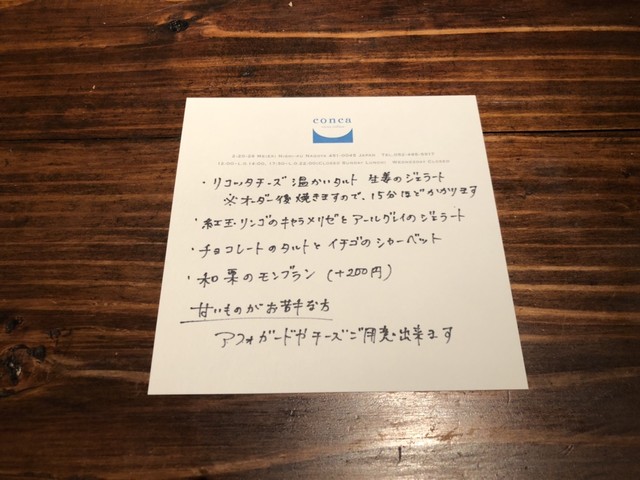 conca
・リコッタチーズ 温かいタルト 生姜のジェラート
※オーダー後焼きますので、15分ほどかかります
・紅玉・リンゴのキャラメリゼとアールグレイのジェラート
・チョコレートのタルトと イチゴのシャーベット
・和栗のモンブラン (+200円)
甘いものがお苦手な方
アフォガードやチーズご用意出来ます